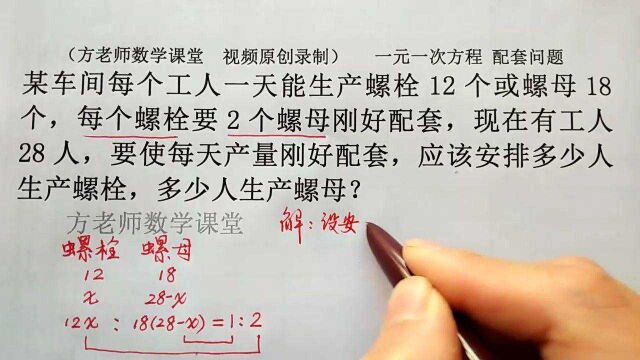 （方老师数学课堂 视频原创录制） 一元一次方程 配套问题
某车间每个工人一天能生产螺栓 12 个或螺母 18
个，每个螺栓要 2 个螺母刚好配套，现在有工人
28 人，要使每天产量刚好配套，应该安排多少人
生产螺栓，多少人生产螺母？
方老师数学课堂
解：设安
螺栓 螺母
12 18
x 28-x
12x : 18(28-x) = 1 : 2